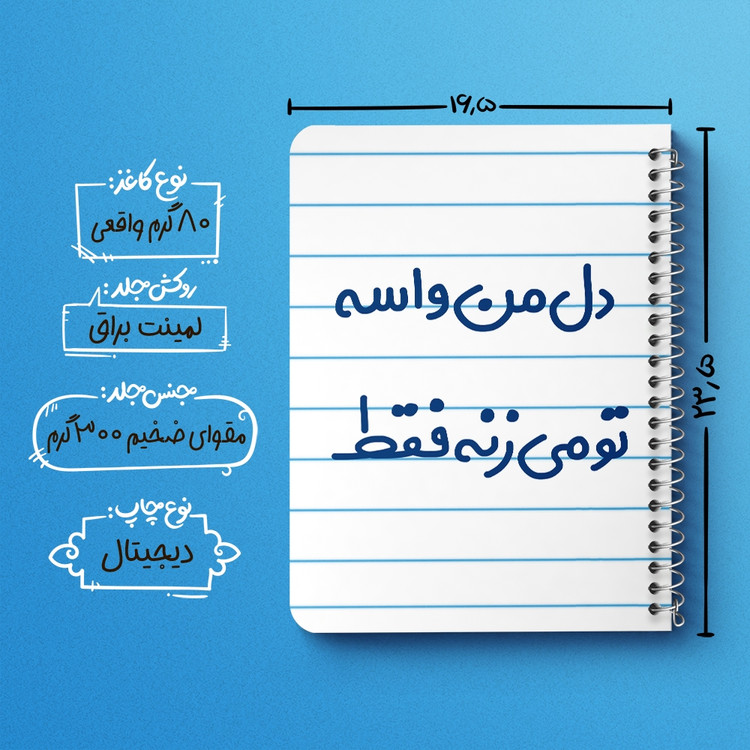 ۱۶,۵
نوع کاغذ:
۸۰ گرم واقعی
روکش جلد:
لمینت براق
جنس جلد:
مقوای ضخیم ۳۰۰ گرم
نوع چاپ:
دیجیتال
دل من واسه
تو می زنه فقط
۲۳,۵